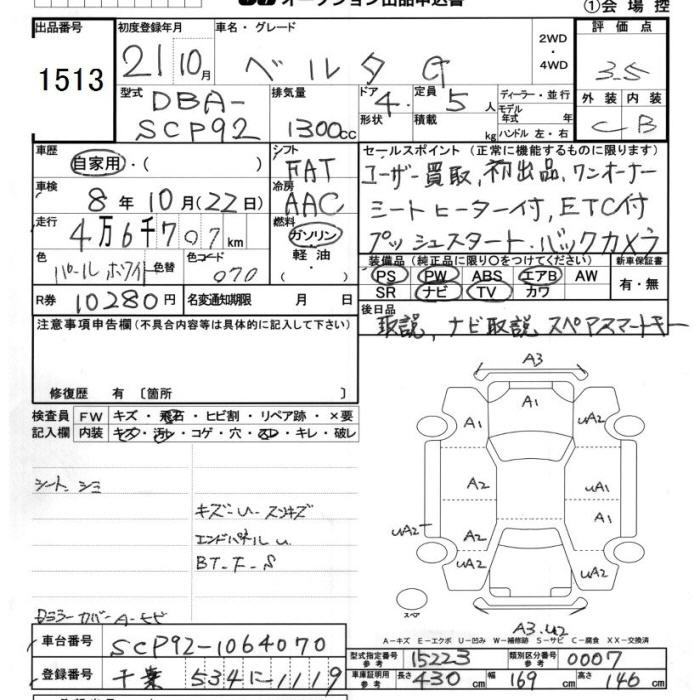 オークション出品申込書
①会場控
出品番号 初度登録年月 車名・グレード 評価点
1513 21 10月 ベルタ G 2WD・4WD 3.5
型式 排気量 ドア 4 定員 5人 ディーラー・並行 外装 内装
DBA-SCP92 1300cc 形状 積載 kg モデル年式 年式 C B
ハンドル 左・右
車歴 シフト セールスポイント(正常に機能するものに限ります)
自家用・( ) FAT ユーザー買取,初出品,ワンオーナー
車検 冷房
8年10月(22日) AAC シートヒーター付,ETC付
走行 燃料
4万6千707km ガソリン プッシュスタート・バックカメラ
色 色替 色コード 軽油・ 装備品(純正品に限り○をつけてください) 新車保証書
パールホワイト 070 ( ) PS PW ABS エアB AW 有・無
R券 10280円 名変通知期限 月 日 SR ナビ TV カワ
後日品
注意事項申告欄(不具合内容等は具体的に記入して下さい) 取説,ナビ取説 スペアスマートキー
修復歴 有〔箇所 〕
検査員 FW キズ・飛石・ヒビ割・リペア跡・×要
記入欄 内装 キズ・汚レ・コゲ・穴・スレ・キレ・破レ
シート シミ
キズ-U- スリキズ
エンドパネル U
BT-F-S
A3
A1
A1 uA2
A2 uA1
A1
uA2 A2
uA2 uA2
スペア
A3.U2
A-キズ E-エクボ U-凹み W-補修跡 S-サビ C-腐食 XX-交換済
車台番号 SCP92-1064070 型式指定番号 参考 15223 類別区分番号 参考 0007
登録番号 千葉 534 に-1119 車庫証明用 参考 長さ 430cm 幅 169cm 高さ 146cm